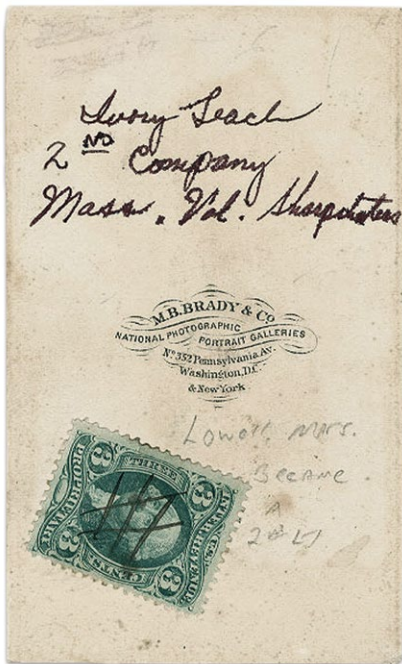 Ivory Leach
2ND Company
Mass. Vol. Sharpshooters
M.B. BRADY & Co
NATIONAL PHOTOGRAPHIC
PORTRAIT GALLERIES
No 352 Pennsylvania Av.
Washington, D.C.
& New York
Lowell, Mass.
BECAME
A
2nd LT
3 THREE 3
PROPRIETARY
U.S. INTER. REVENUE
3 CENTS 3